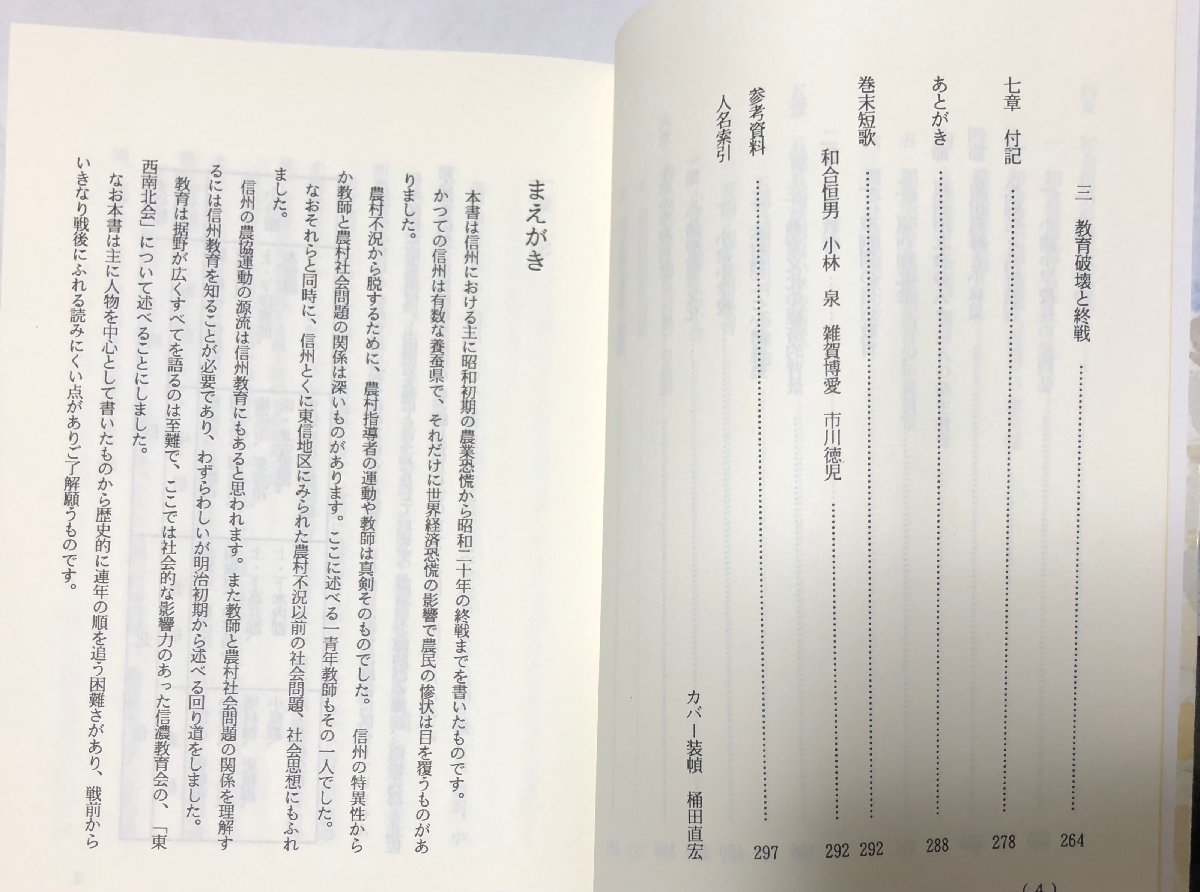 三　教育破壊と終戦 …… 264
七章　付記 …… 278
あとがき …… 288
巻末短歌 …… 292
和合恒男　小林　泉　雑賀博愛　市川徳児 …… 292
参考資料 …… 297
人名索引
カバー装幀　桶田直宏
(4)
まえがき
本書は信州における主に昭和初期の農業恐慌から昭和二十年の終戦までを書いたものです。
かつての信州は有数な養蚕県で、それだけに世界経済恐慌の影響で農民の惨状は目を覆うものがあ
りました。
農村不況から脱するために、農村指導者の運動や教師は真剣そのものでした。　信州の特異性から
か教師と農村社会問題の関係は深いものがあります。ここに述べる一青年教師もその一人でした。
なおそれらと同時に、信州とくに東信地区にみられた農村不況以前の社会問題、社会思想にもふれ
ました。
信州の農協運動の源流は信州教育にもあると思われます。また教師と農村社会問題の関係を理解す
るには信州教育を知ることが必要であり、わずらわしいが明治初期から述べる回り道をしました。
教育は据野が広くすべてを語るのは至難で、ここでは社会的な影響力のあった信濃教育会の、「東
西南北会」について述べることにしました。
なお本書は主に人物を中心として書いたものから歴史的に連年の順を追う困難さがあり、戦前から
いきなり戦後にふれる読みにくい点がありご了解願うものです。